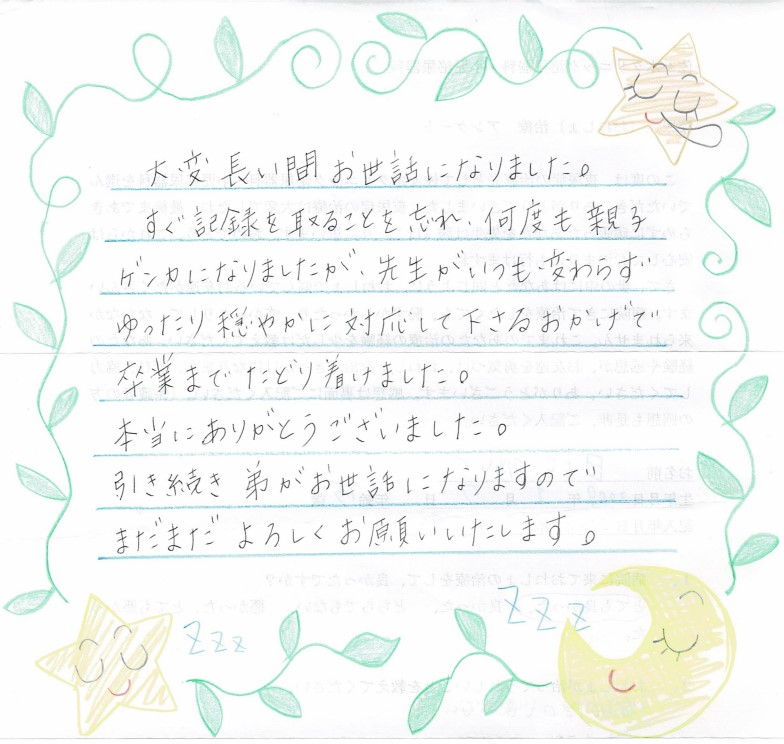 大変長い間お世話になりました。
すぐ記録を取ることを忘れ、何度も親子
ゲンカになりましたが、先生がいつも変わらず
ゆったり穏やかに対応して下さるおかげで
卒業までたどり着けました。
本当にありがとうございました。
引き続き弟がお世話になりますので
まだまだよろしくお願いいたします。
ZZZ
Zzz